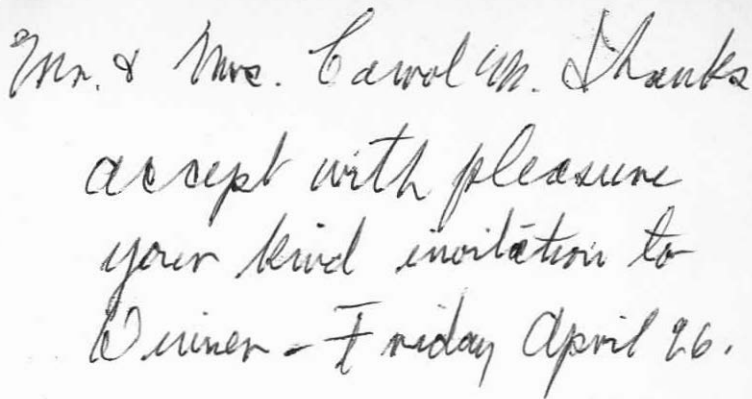 Mr. & Mrs. Carol M. Shanks
accept with pleasure
your kind invitation to
Dinner - Friday April 26.